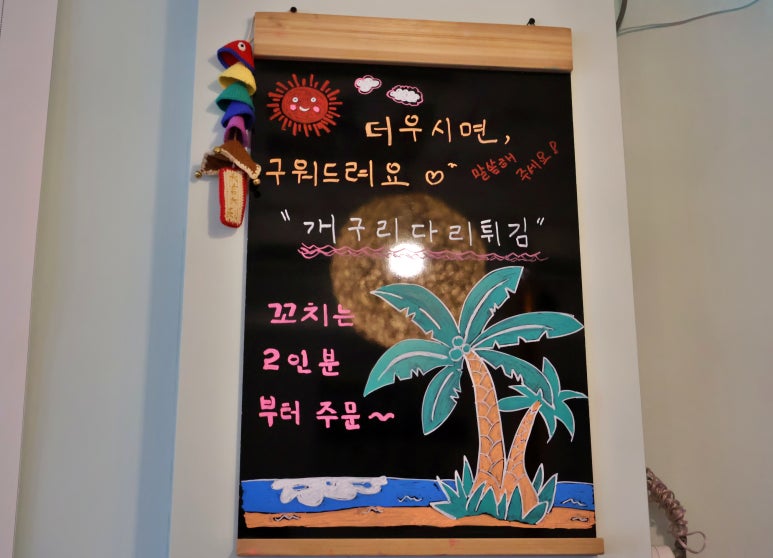 더우시면,
구워드려요 ♡
말씀해
주세요!
"개구리다리튀김"
꼬치는
2인분
부터 주문~